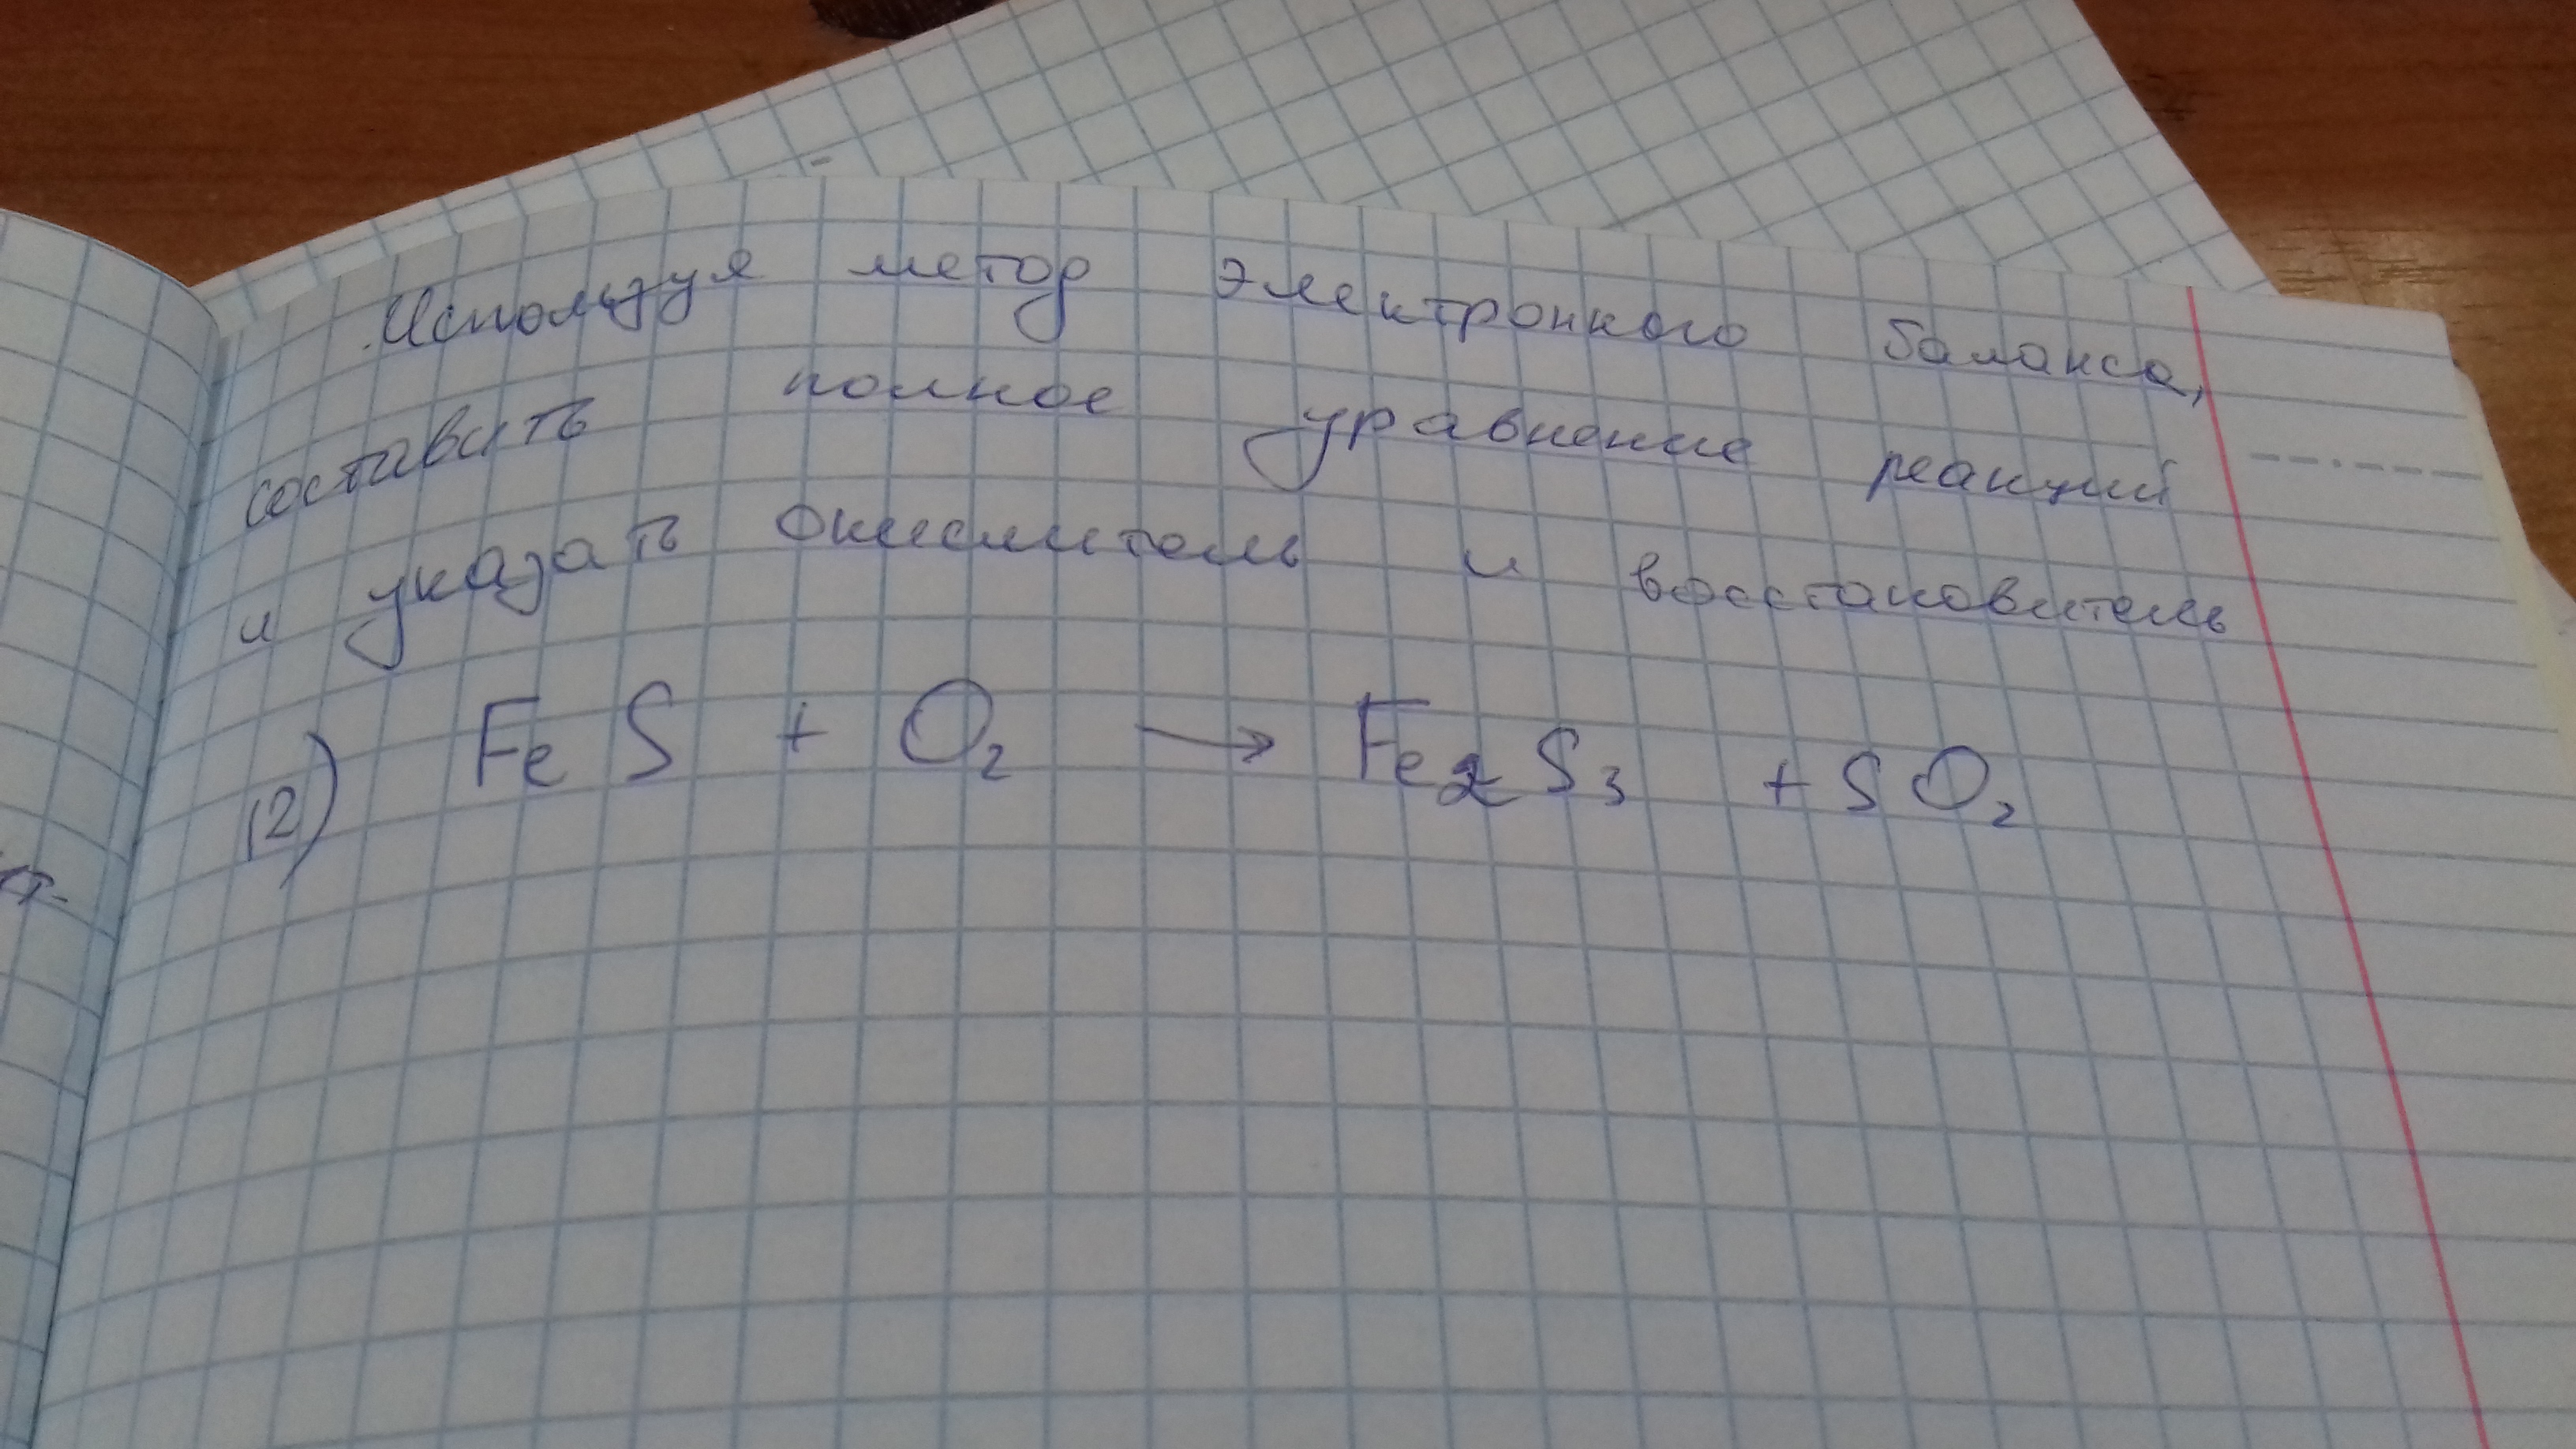 Используя метод электронного баланса,
составить полное уравнение реакций
и указать окислитель и восстановитель
12) FeS + O₂ → Fe₂S₃ + SO₂